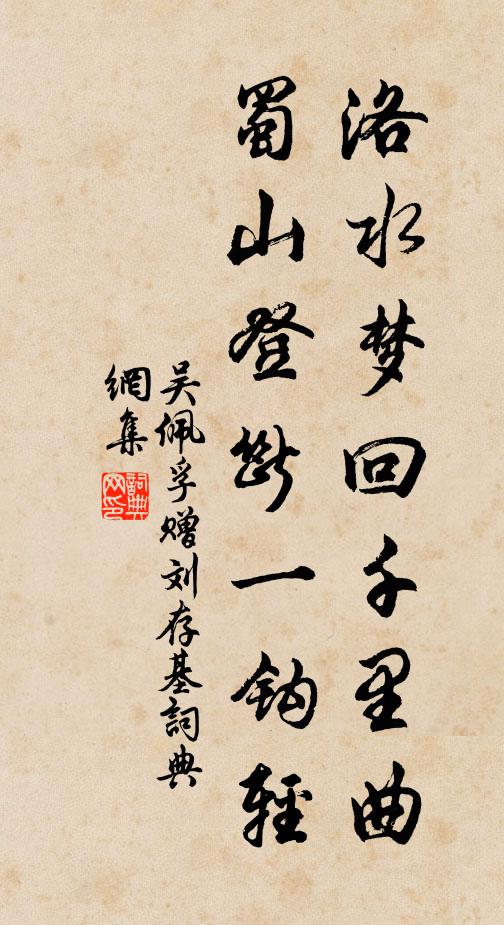 洛水梦回千里曲
蜀山登断一钩轻
吴佩孚赠刘存基詞典
網集
詞典
网印